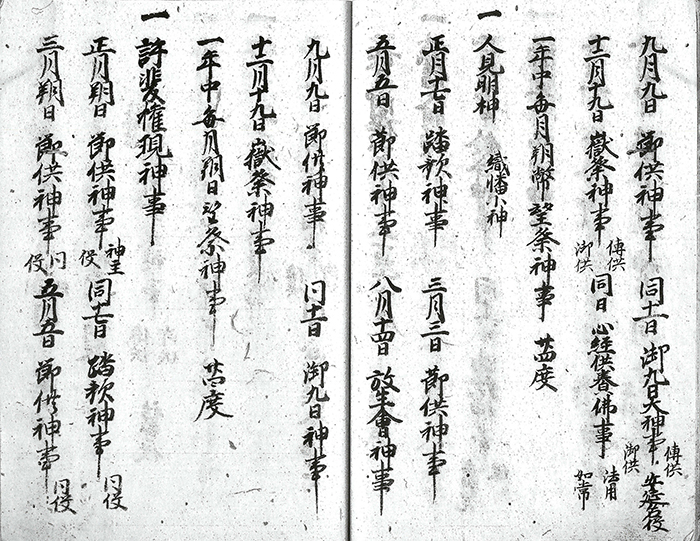 九月九日 節供神事 同十一日 御九日大神事 傳供 御供
十一月十九日 嶽祭神事 傳供 御供 同日 心経供養佛事 法用 如常
一年中毎月朔幣望祭神事 廿四度
一 人見明神 織幡小神
正月十七日 踏歌神事 三月三日 節供神事
五月五日 節供神事 八月十四日 放生會神事
九月九日 節供神事 同十一日 御九日神事
十一月十九日 嶽祭神事
一年中毎月朔日望祭神事 廿四度
一 許斐権現神事
正月朔日 節供神事 神主役 同十七日 踏歌神事 同役
三月朔日 節供神事 同役 五月五日 節供神事 同役